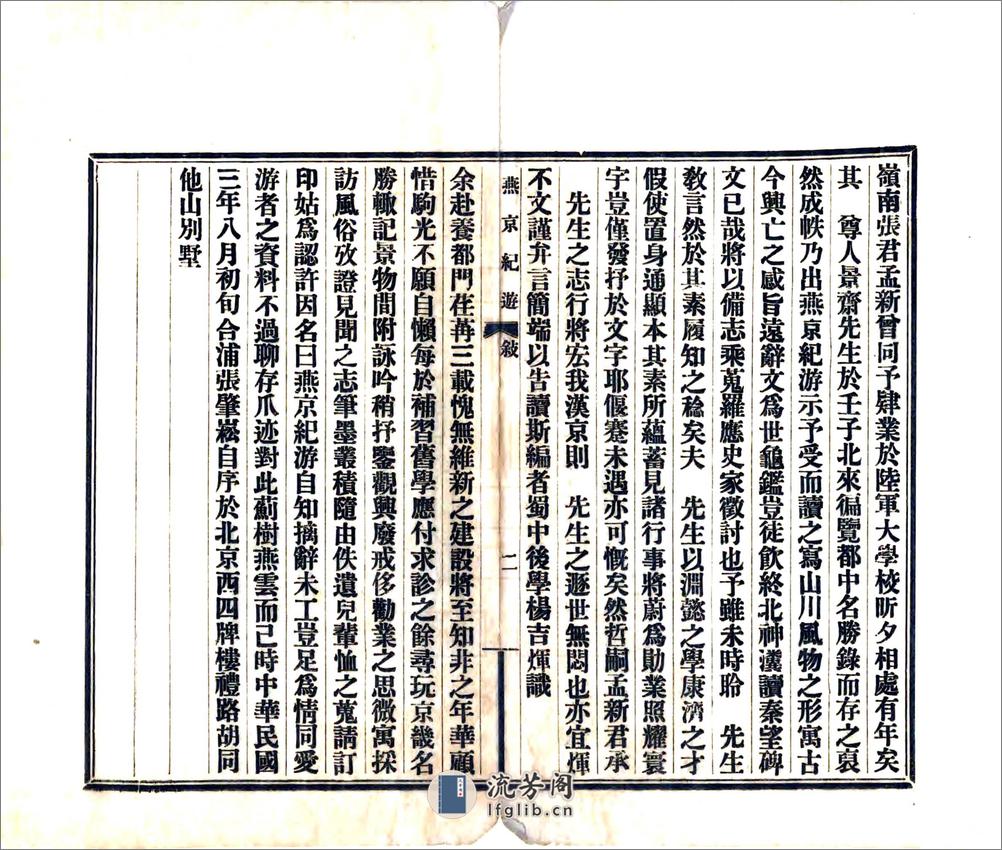 嶺南張君孟新曾同予肄業於陸軍大學校昕夕相處有年矣
其　尊人景齋先生於壬子北來徧覽都中名勝錄而存之裒
然成帙乃出燕京紀游示予受而讀之寫山川風物之形寓古
今興亡之感旨遠辭文爲世龜鑑豈徒飮終北神瀵讀秦望碑
文已哉將以備志乘蒐羅應史家徵討也予雖未時聆　先生
敎言然於其素履知之稔矣夫　先生以淵懿之學康濟之才
假使置身通顯本其素所蘊蓄見諸行事將蔚爲勛業照耀寰
宇豈僅發抒於文字耶偃蹇未遇亦可慨矣然哲嗣孟新君承
先生之志行將宏我漢京則　先生之遯世無悶也亦宜煇
不文謹弁言簡端以告讀斯編者蜀中後學楊吉煇識
燕京紀遊　敍　二
余赴養都門荏苒三載愧無維新之建設將至知非之年華顧
惜駒光不願自懶每於補習舊學應付求診之餘尋玩京畿名
勝輙記景物間附詠吟稍抒鑒觀興廢戒侈勸業之思微寓採
訪風俗攷證見聞之志筆墨叢積隨由佚遺兒輩恤之蒐請訂
印姑爲認許因名曰燕京紀游自知摛辭未工豈足爲情同愛
游者之資料不過聊存爪迹對此薊樹燕雲而已時中華民國
三年八月初旬合浦張肇崧自序於北京西四牌樓禮路胡同
他山別墅
流芳阁
lfglib.cn